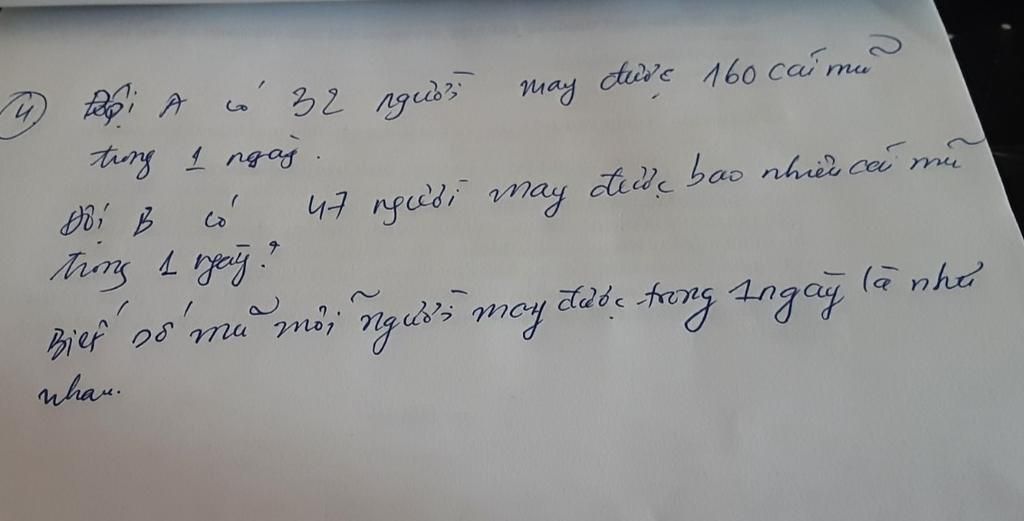 ④ Đội A có 32 người may được 160 cái mũ
trong 1 ngày.
Đội B có 47 người may được bao nhiêu cái mũ
trong 1 ngày?
Biết số mũ mỗi người may được trong 1 ngày là như
nhau.